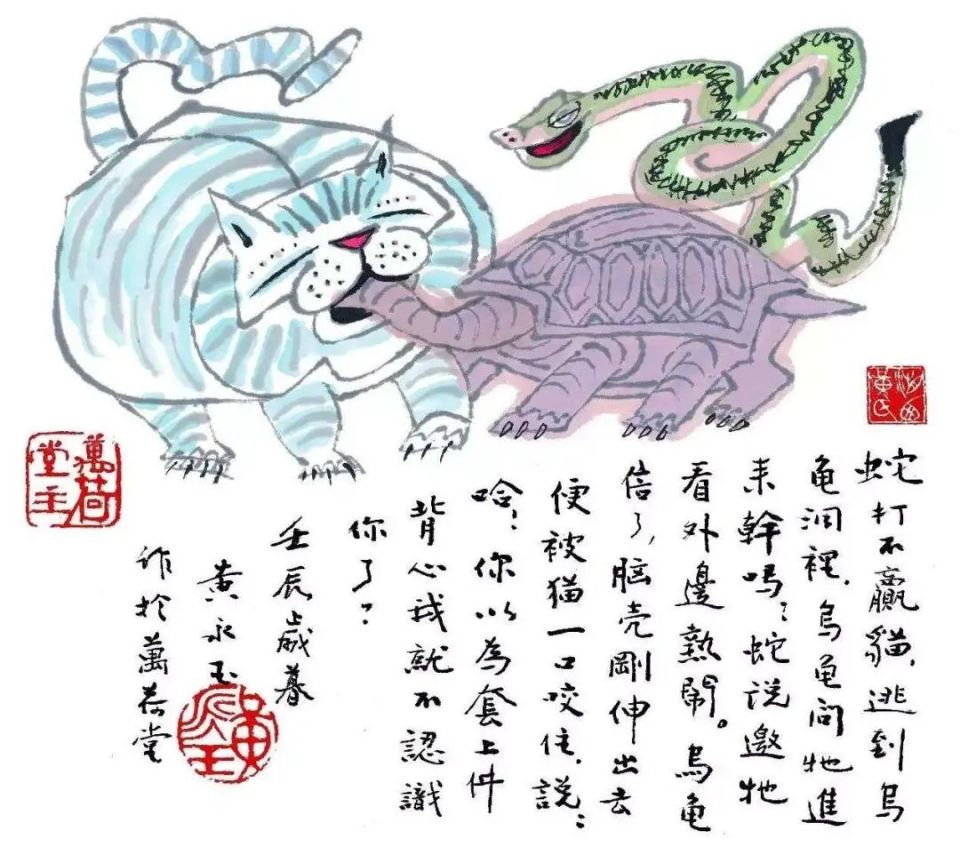 蛇打不贏貓，逃到烏
龟洞裡，烏龟问牠進
来幹嗎？蛇说邀牠
看外邊熱鬧。烏龟
信了，脑壳剛伸出去
便被猫一口咬住，説：
哈！你以為套上件
背心我就不認識
你了？
壬辰歲暮
黄永玉
作於萬荷堂
萬荷
堂主
黄
永玉